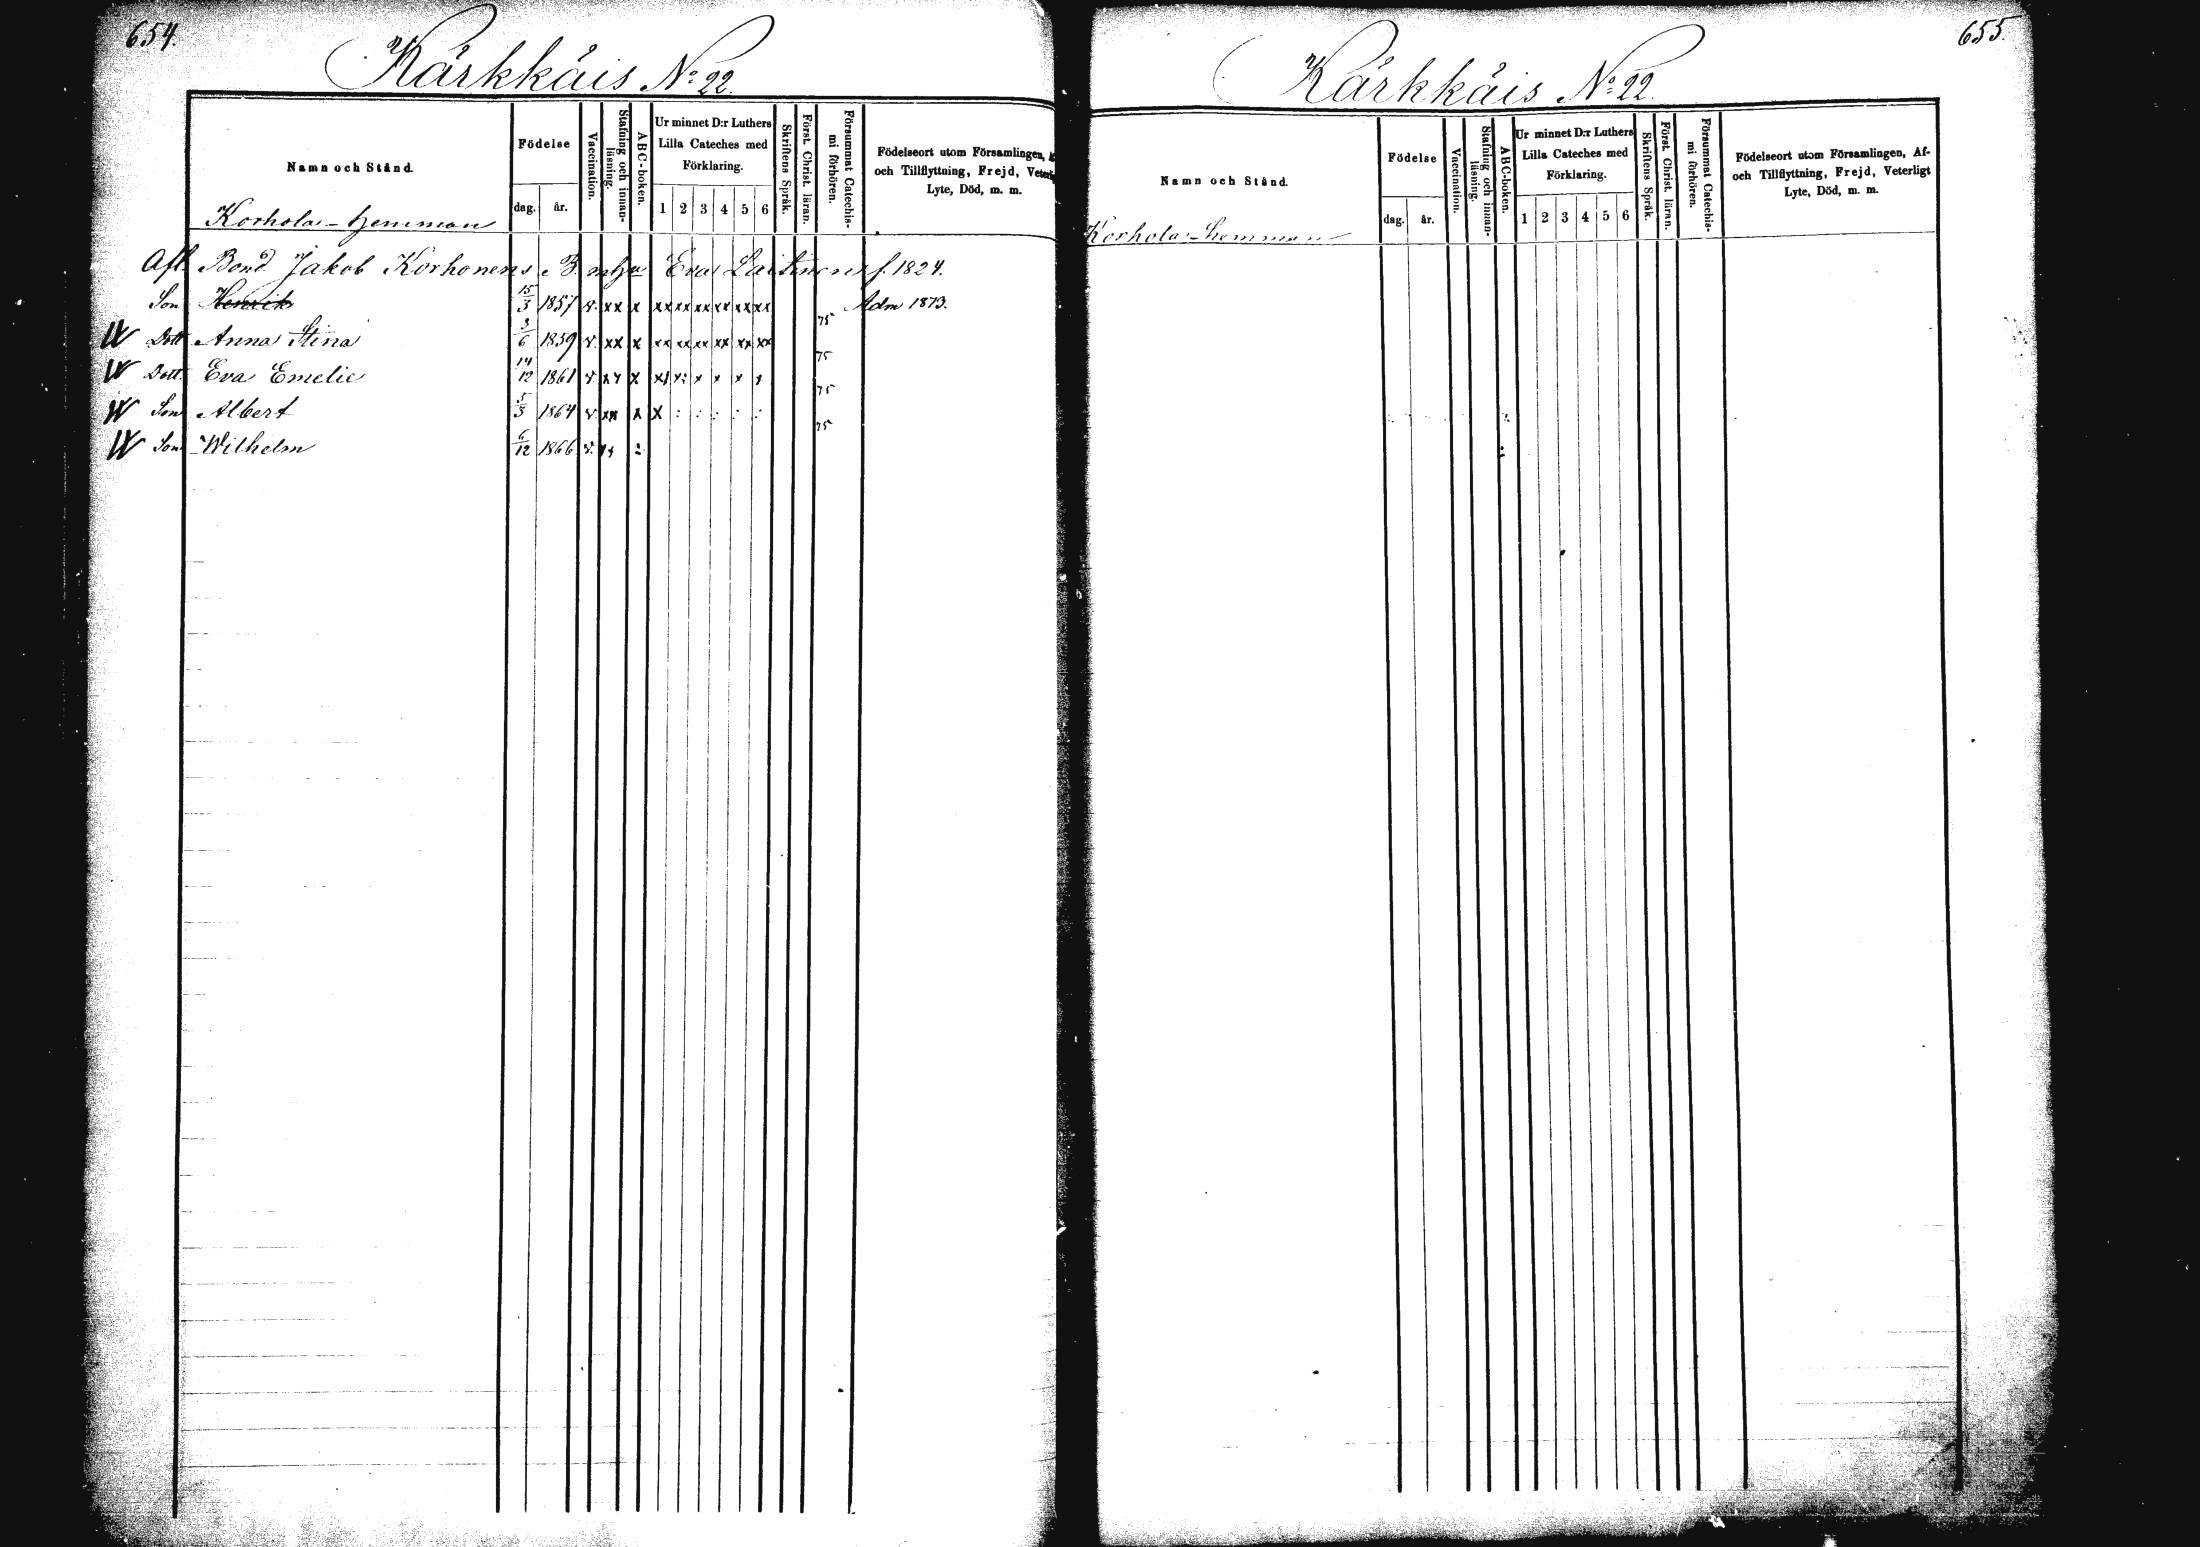 654.
Kärkkäis No 22.
Namn och Stånd.
Födelse
dag. år.
Vaccination.
Stafning och innan-läsning.
ABC-boken.
Ur minnet D:r Luthers
Lilla Cateches med
Förklaring.
1 2 3 4 5 6
Skriftens Språk.
Först. Christ. läran.
Försummat Catechis-mi förhören.
Födelseort utom Församlingen,
och Tillflyttning, Frejd,
Lyte, Död, m. m.
Korhola-hemman
Afl. Bond. Jakob Korhonens Eva Laitinens f. 1824.
Son Henrik 15/3 1857 v. xx x xx xx xx xx xx xx Adm 1873.
75
Dott Anna Stina 3/6 1859 v. xx x xx xx xx xx xx xx
75
Dott. Eva Emelie 14/12 1861 v.
75
Son Albert 5/3 1864 v. xx x x : : : : :
75
Son Wilhelm 6/12 1866 v.
655.
Kärkkäis No 22.
Namn och Stånd.
Födelse
dag. år.
Vaccination.
Stafning och innan-läsning.
ABC-boken.
Ur minnet D:r Luthers
Lilla Cateches med
Förklaring.
1 2 3 4 5 6
Skriftens Språk.
Först. Christ. läran.
Försummat Catechis-mi förhören.
Födelseort utom Församlingen, Af-
och Tillflyttning, Frejd, Veterligt
Lyte, Död, m. m.
Korhola-hemman